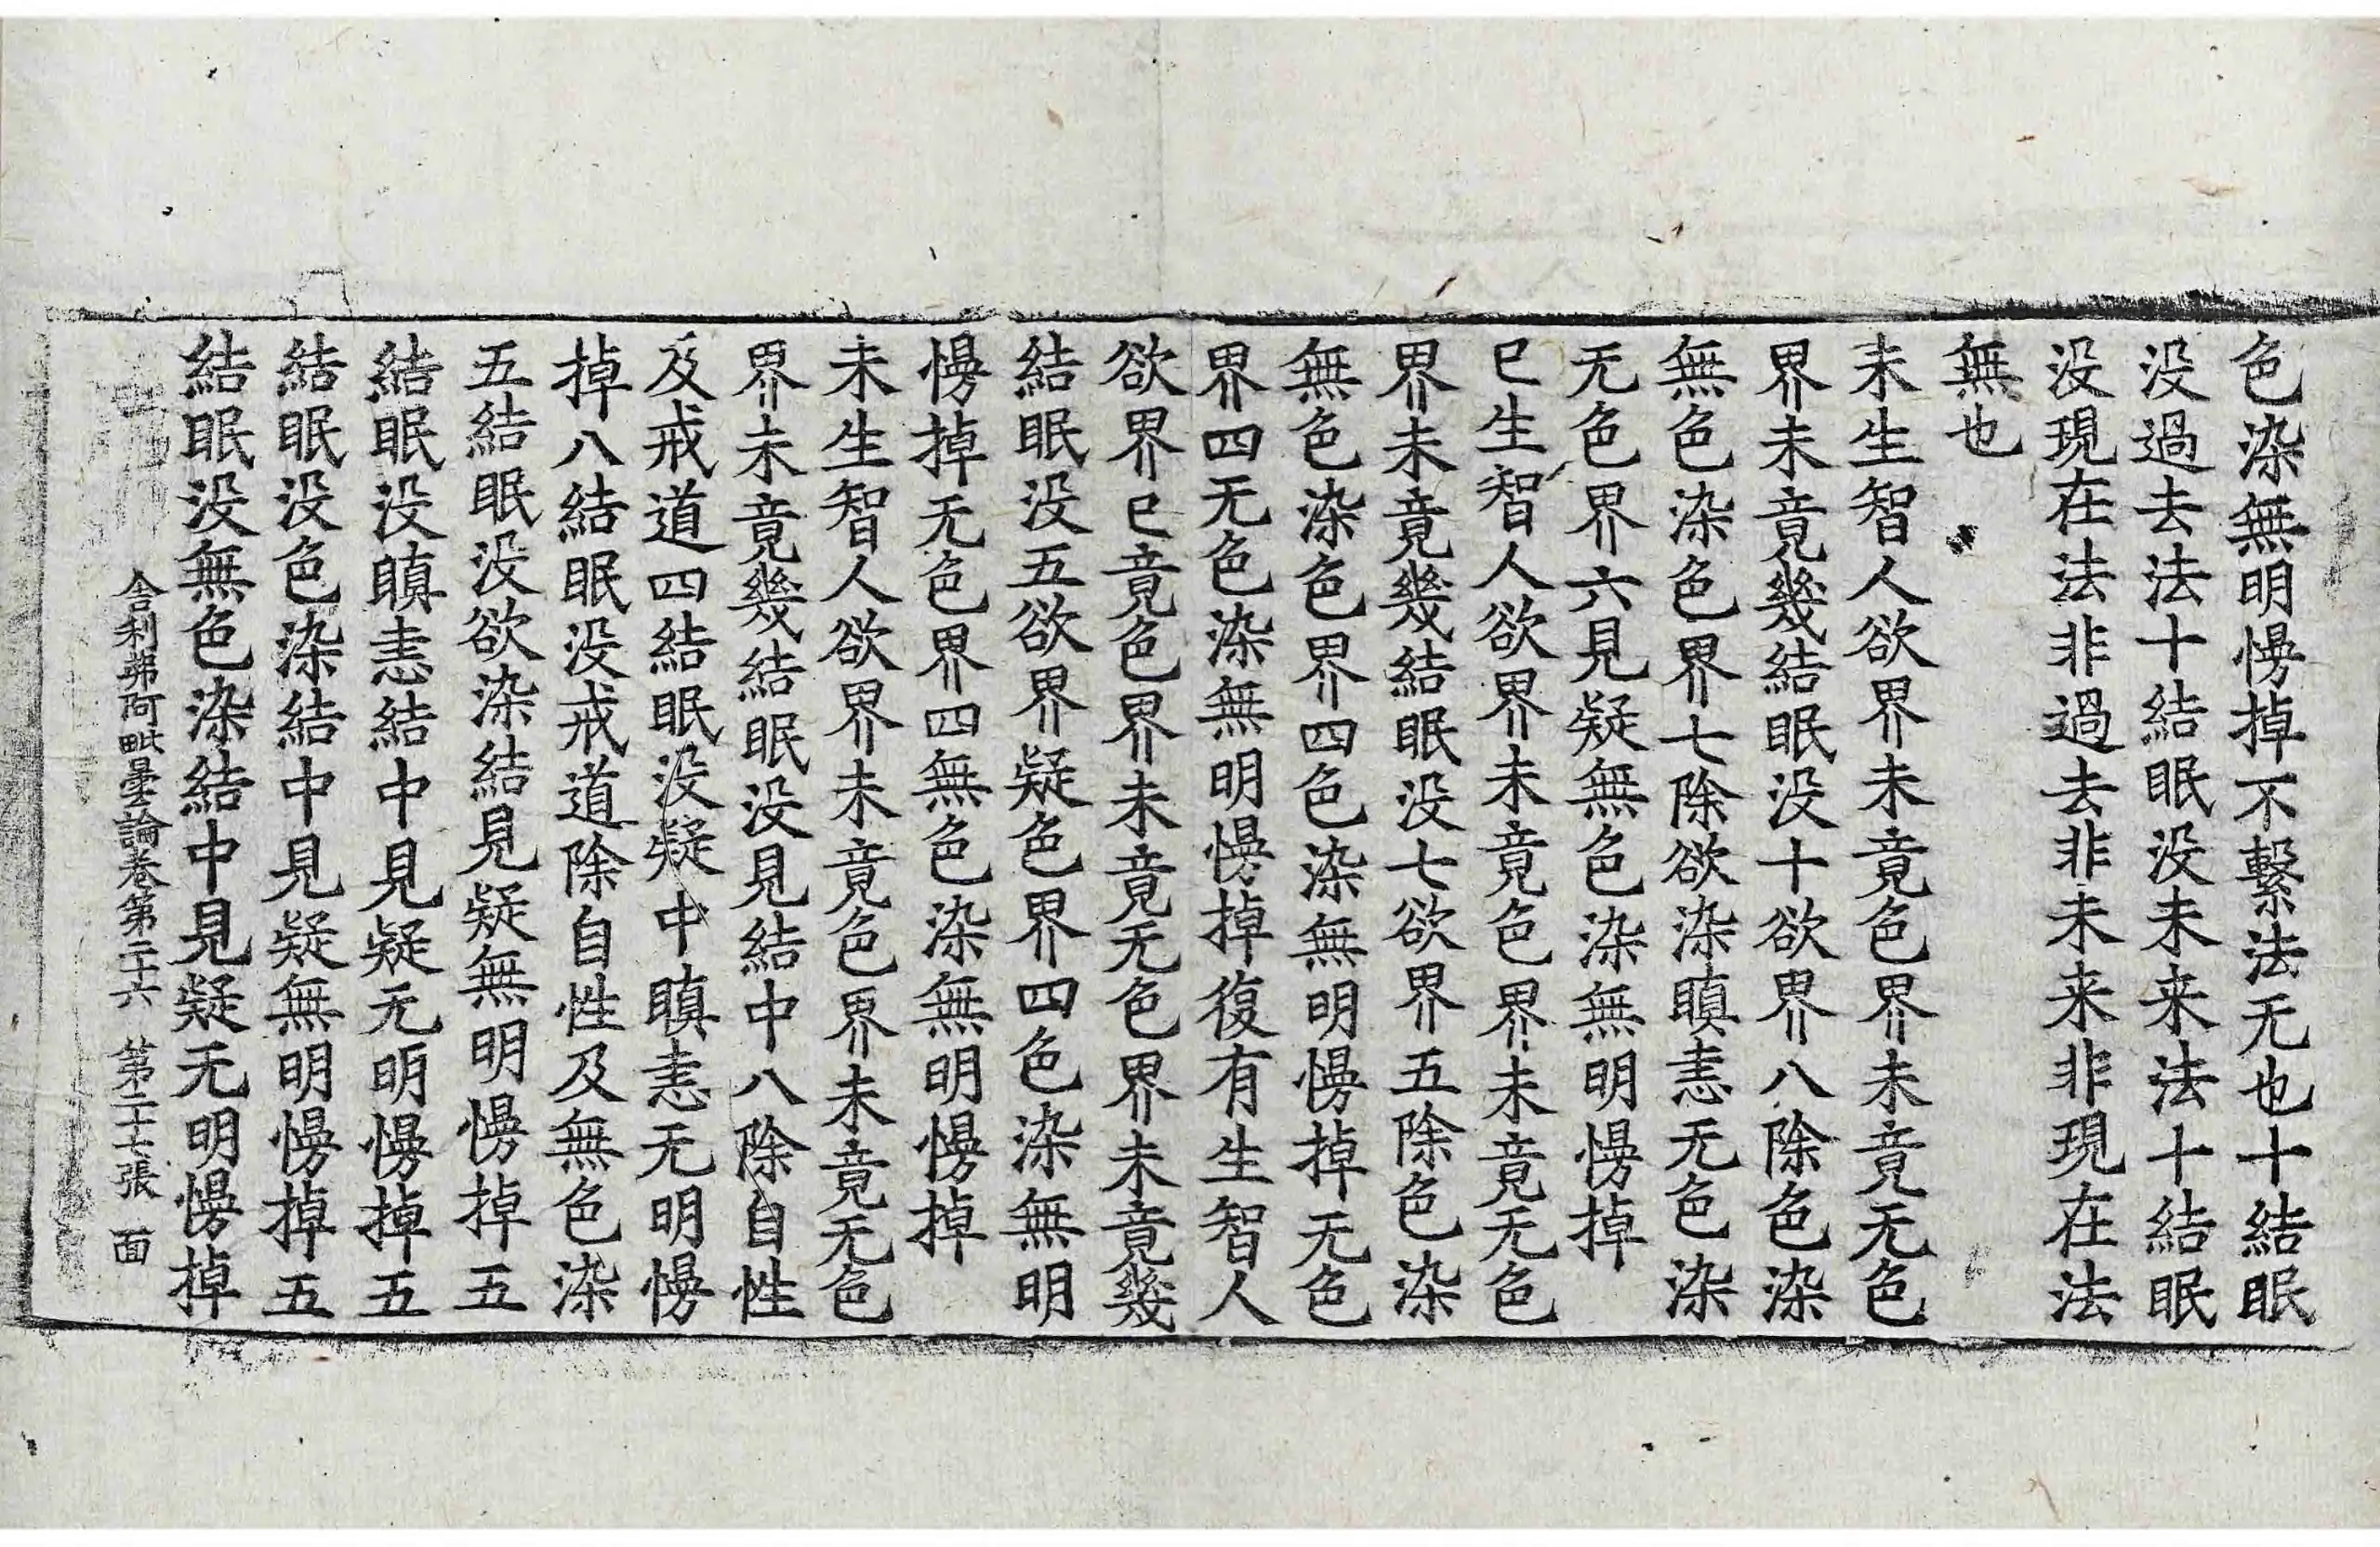 色染無明慢掉不繫法无也十結眠
没過去法十結眠没未来法十結眠
没現在法非過去非未来非現在法
無也
未生智人欲界未竟色界未竟无色
界未竟幾結眠没十欲界八除色染
無色染色界七除欲染瞋恚无色染
无色界六見疑無色染無明慢掉
已生智人欲界未竟色界未竟无色
界未竟幾結眠没七欲界五除色染
無色染色界四色染無明慢掉无色
界四无色染無明慢掉復有生智人
欲界已竟色界未竟无色界未竟幾
結眠没五欲界疑色界四色染無明
慢掉无色界四無色染無明慢掉
未生智人欲界未竟色界未竟无色
界未竟幾結眠没見結中八除自性
及戒道四結眠没疑中瞋恚无明慢
掉八結眠没戒道除自性及無色染
五結眠没欲染結見疑無明慢掉五
結眠没瞋恚結中見疑无明慢掉五
結眠没色染結中見疑無明慢掉五
結眠没無色染結中見疑无明慢掉
舍利弗阿毗曇論卷第二十六 第二十七張 面